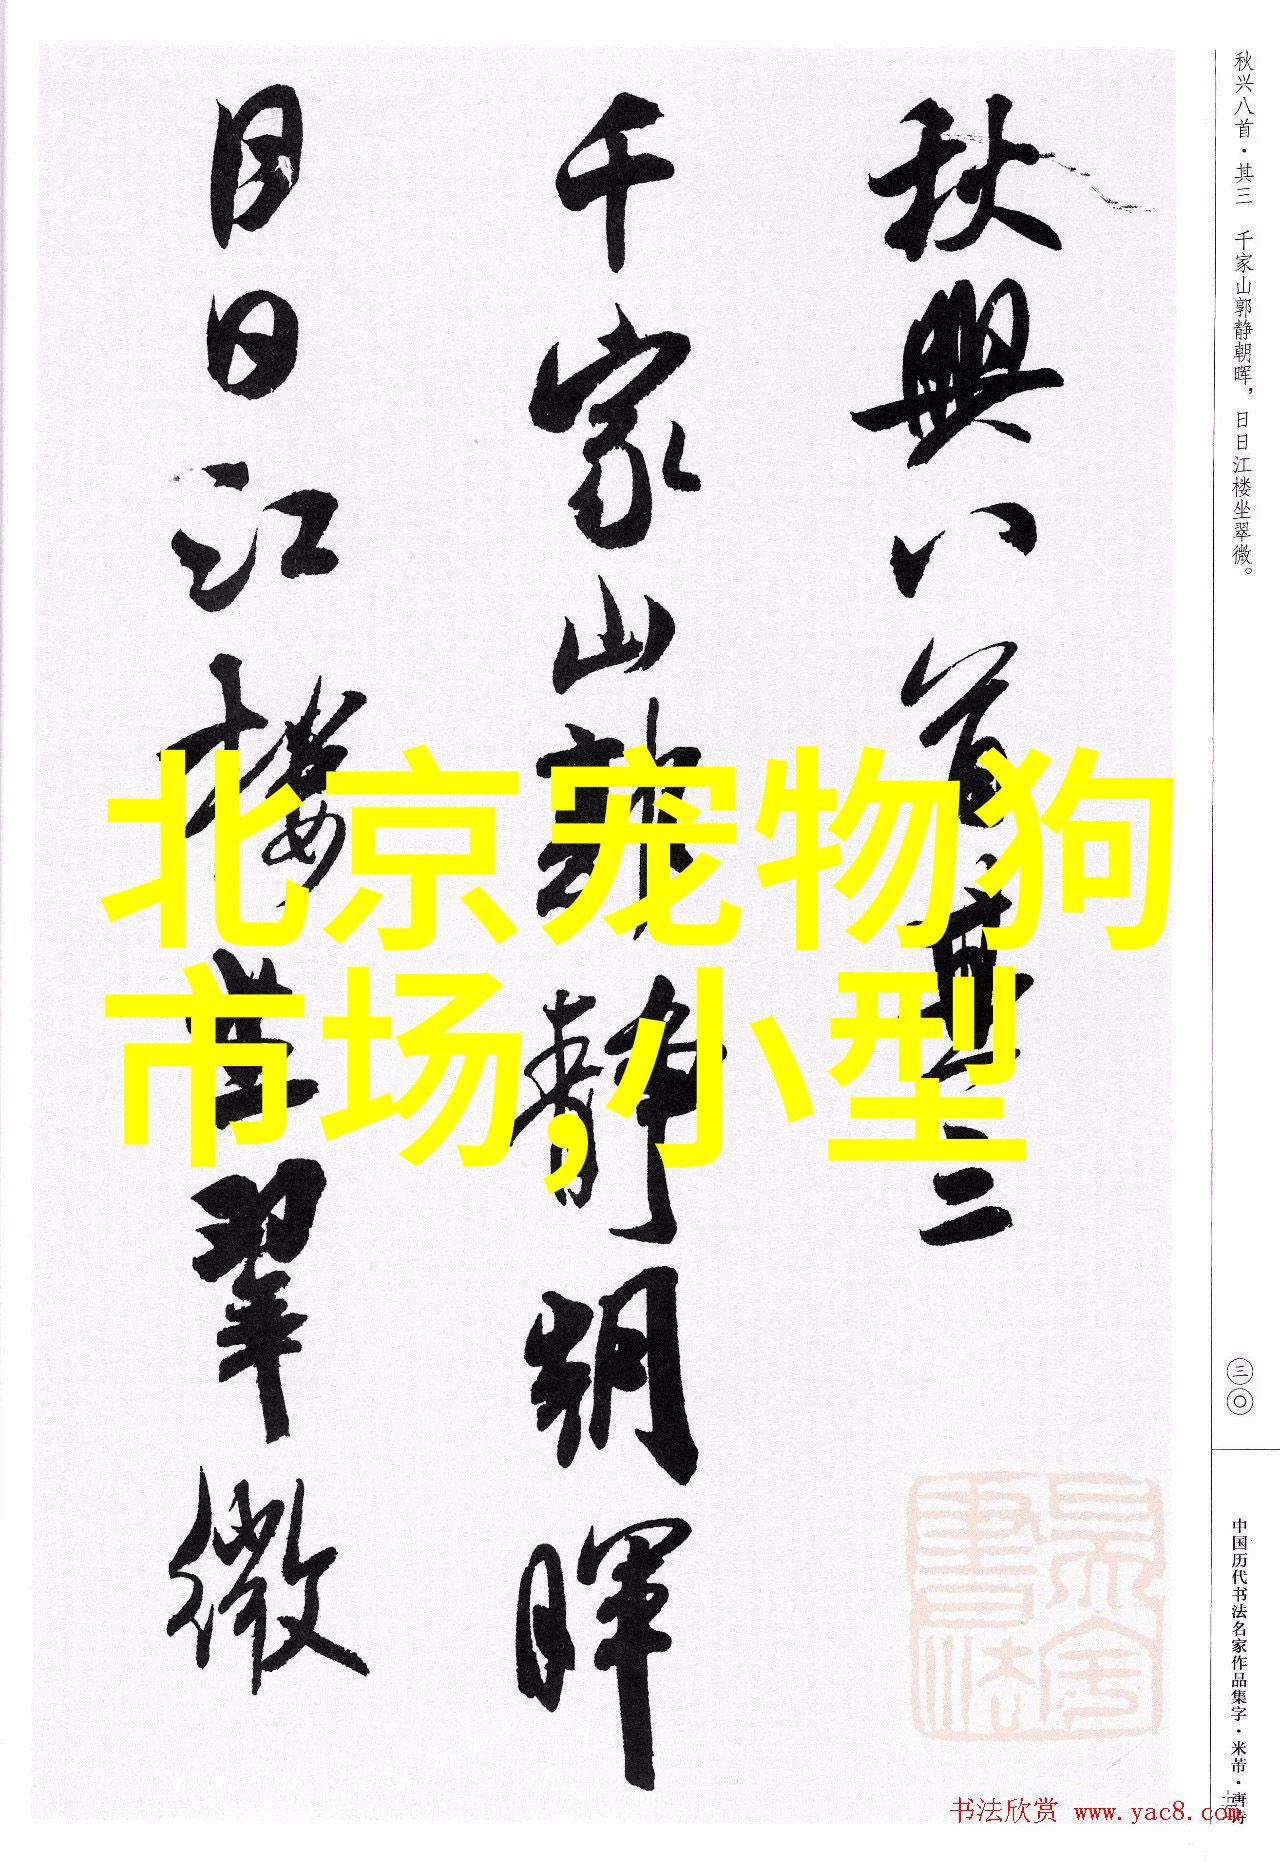 秋兴八首·其三 千家山郭静朝晖，日日江楼坐翠微。
三〇
中国历代书法名家作品集字·米芾·唐诗
秋興八首其三
千家山郭静朝暉
日日江樓坐翠微
北京宠物狗
市场,小型
书法欣赏 www.yac8.com